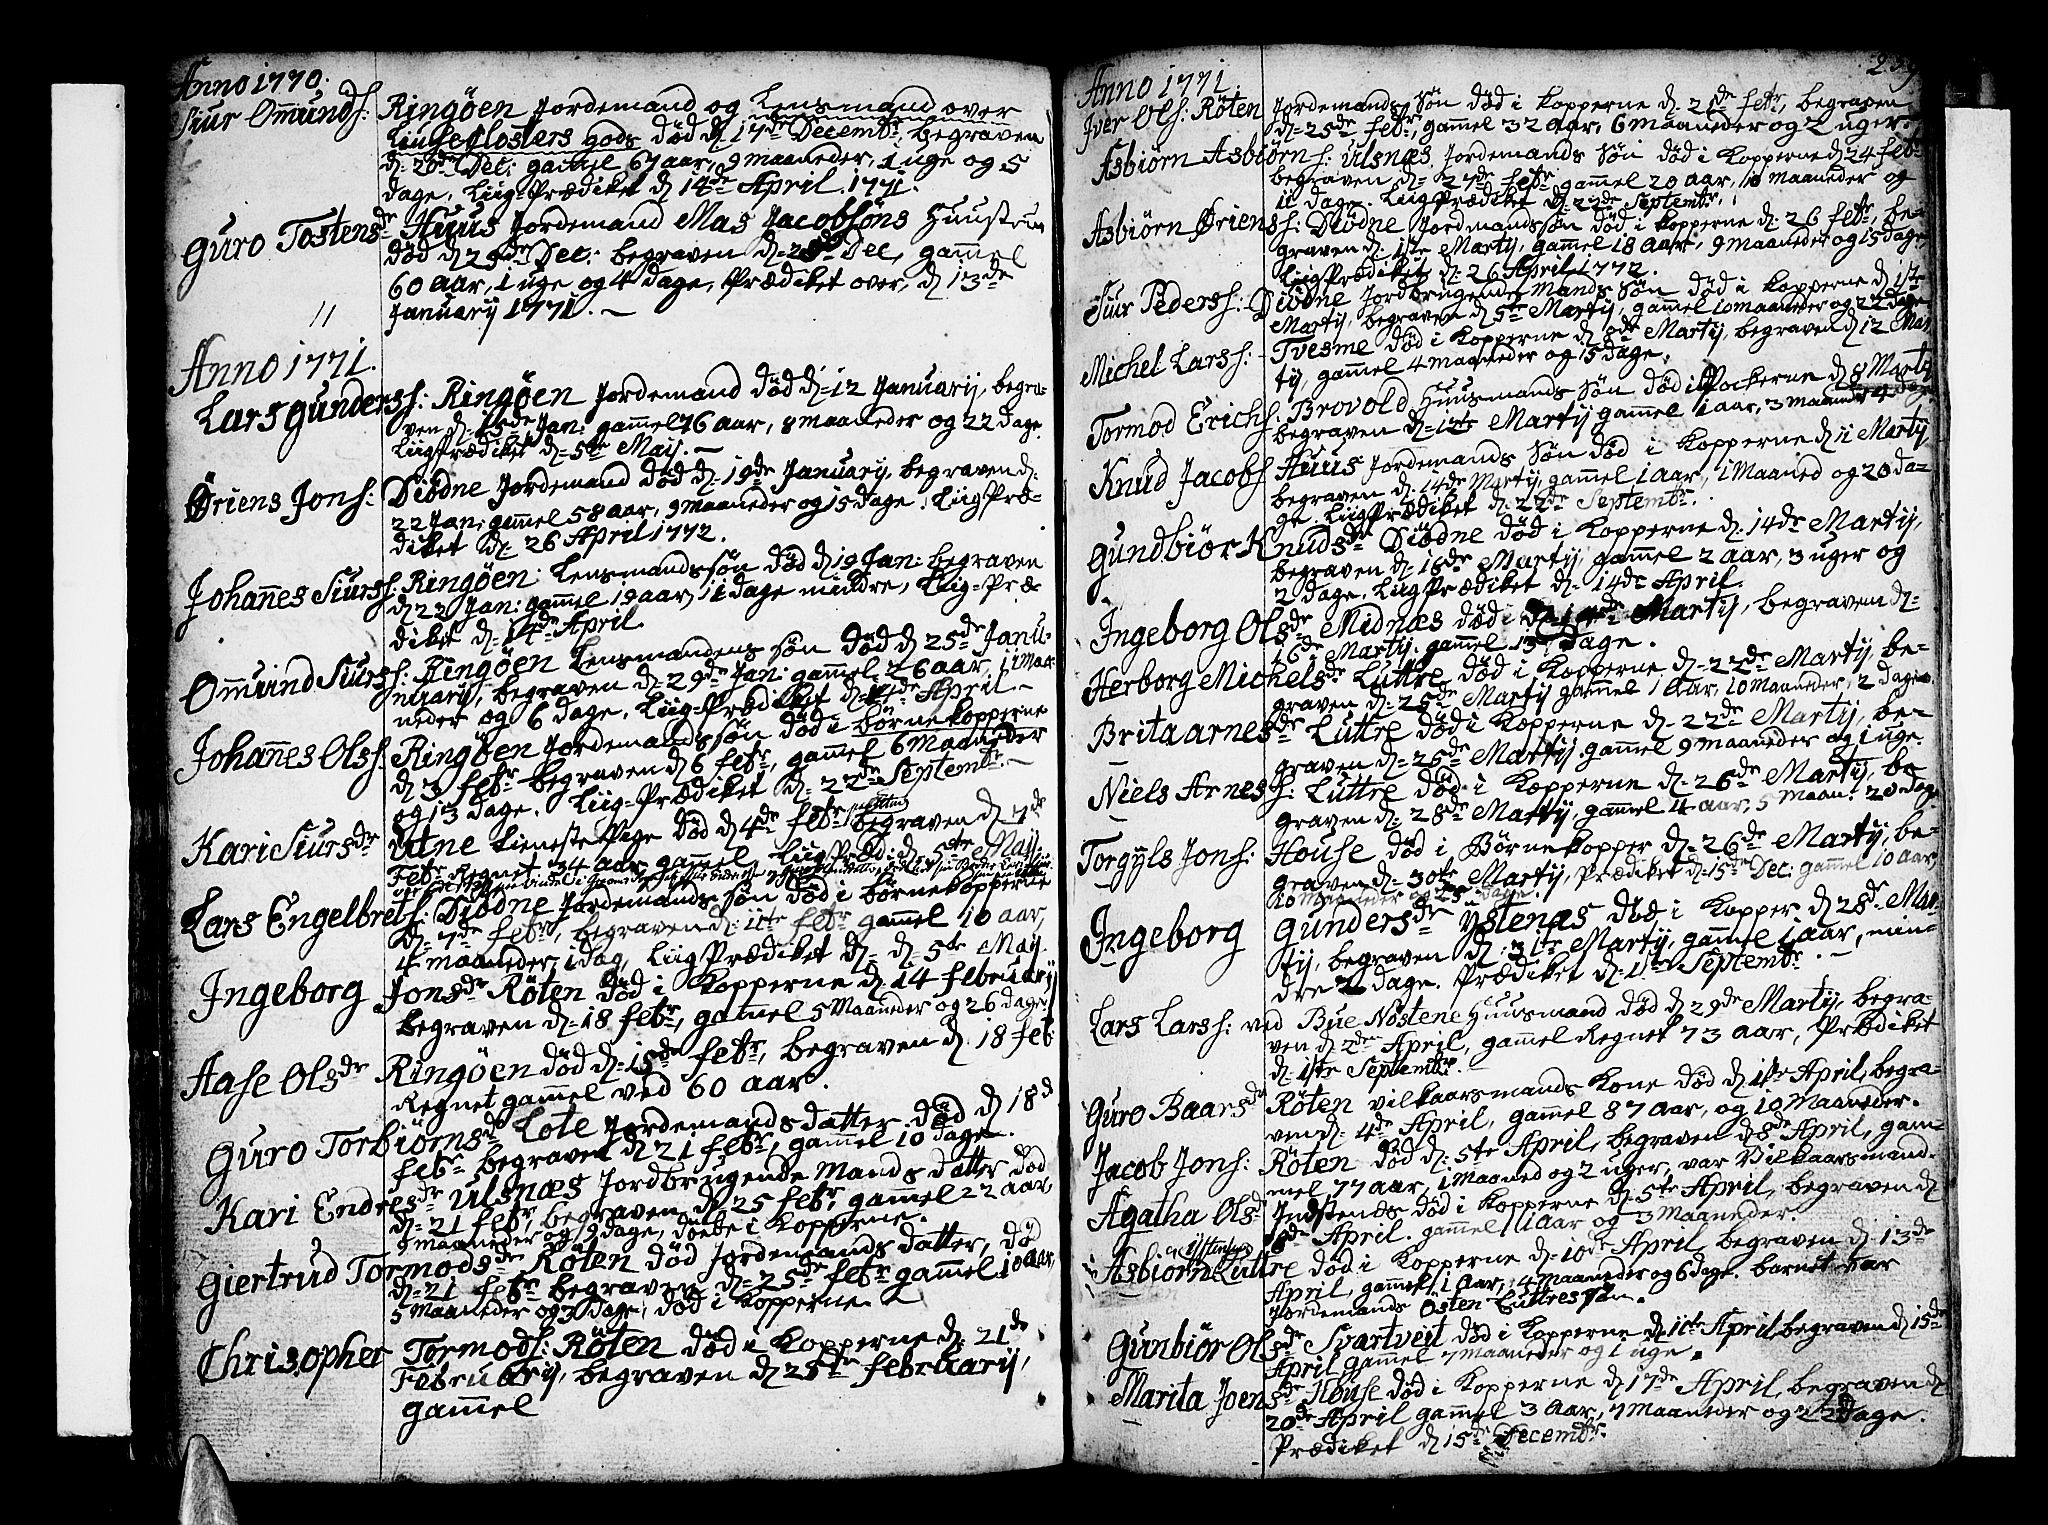 Anno 1770.
Siur Omunds: Ringöen Jordemand og Lensmand over
Liuseclosters gods död d: 17de Decembr, begraven
d: 20de Dec: gamel 67 aar, 9 maaneder, 1 uge og 5
dage, Liig-Prædiket d 14de April 1771.
Guro Tostensdr Huus Jordemand Mas Jacobsöns Huustrue
död d 23de Dec: begraven d: 28de Dec, gamel
60 aar, 1 uge og 4 dage, Prædiket over, d 13de
Januarij 1771. —
Anno 1771.
Lars Gunders: Ringöen Jordemand död d: 12 Januarij, begra-
ven d: 15de Jan: gamel 76 aar, 8 maaneder og 22 dage
LiigPrædiket d: 5te Maij. —
Öriens Jons: Diödne Jordemand död d: 19de Januarij, begraven d:
22 Jan: gamel 58 aar, 9 maaneder og 15 dage. LiigPræ-
diket d: 26 April 1772.
Johanes Siurs: Ringöen: Lensmandssön död d 19 Jan: begraven
d 23 Jan: gamel 19 aar, 11 dage mindre, Liig-Præ-
diket d: 14de April.
Omund Siurs: Ringöen Lensmandens sön död d 25de Janu-
uarij, begraven d: 29de Jan: gamel 26 aar, 11 maa-
neder og 6 dage. Liig-Prædiket d: 14de April. —
Johanes Ols: Ringöen Jordemandssön död i börnekopperne
d 3 febr begraven d 6 febr, gamel 6 maaneder
og 13 dage. Liig-Prædiket d: 22de Septembr. —
Kari Siursdr Utne tieneste Pige död d 4de febr begraven d 7de
Febr Regnet 34 aar gamel, LiigPræd: d: 5te Maij:
Lars Engelbrets: Diödne Jordemandssön död i börnekopperne
d: 7de febr, begraven d: 11te febr gamel 10 aar,
4 maaneder, 1 dag, Liig Prædiket d: d: 5te Maij.
Ingeborg Jonsdr Röten död i Kopperne d 14 februarij
begraven d: 18 febr, gamel 5 maaneder og 26 dage,
Aase Olsdr Ringöen död d: 15de febr, begraven d 18 feb:
Regnet gamel ved 60 aar.
Guro Torbiörnsd Lote Jordemandsdatter död d 18d
febr begraven d 21 febr, gamel 10 dage.
Kari Endresdr Ulsnæs Jordbrugende Mands datter död
d: 21 febr, begraven d: 25 febr, gamel 22 aar,
9 maaneder og 19 dage, döebe i Kopperne.
Giertrud Tormodsdr Röten död Jordemands datter, dö
d: 21 febr begraven d: 25de febr gamel 10 aar,
5 maaneder og 3 dage, död i Kopperne. —
Chrisopher Tormods: Röten död i Kopperne d: 21de
Februarij, begraven d 25te februarij,
gamel
Anno 1771
Iver Ols: Röten Jordemands sön död i Kopperne d: 21de febr, begraven
d: 25de febr, gamel 32 aar, 6 maaneder og 2 uger.
Asbiörn Asbiörns: Ulsnæs Jordemands sön död i Kopperne d 24 febr
begraven d: 27de febr gamel 20 aar, 10 maaneder og
11 dage. LiigPrædiket d: 22de Septembr.
Asbiörn Öriens: Diödne Jordemandssön död i Kopperne d: 26 febr, be-
graven d: 1ste Martij, gamel 18 aar, 9 maaneder og 15 dage,
LiigPrædiket d: 26 April 1772.
Siur Peders: Diödne Jordbrugende Mands Sön död i Kopperne d 1ste
Martij, begraven d 5te Martij, gamel 10 maaneder og 22 dage
Michel Lars: Tvesme död i Kopperne d 8de Martij, begraven d 12 Mar
tij, gamel 4 maaneder og 15 dage.
Tormod Erichs: Brovold Huusmands Sön död i Pockerne d 8 Martij
begraven d: 12te Martij gamel 1 aar, 3 maaneder 4 dage
Knud Jacobs Huus Jordemands sön död i Kopperne d 11 Martij
begraven d: 14de Martij, gamel 1 aar, 1 Maaned og 20 da-
ge. LiigPrædiket d: 22de Septembr.
Gundbiör Knudsdr Diödne död i Kopperne d: 14de Martij,
begraven d: 18de Martij, gamel 2 aar, 3 uger og
2 dage. LiigPrædiket d: 14de April.
Ingeborg Olsdr Midnæs död i d: 14de Martij, begraven d:
16de Martij, gamel 13 dage.
Herborg Michelsdr Luttre död i Kopperne d: 22de Martij, be-
graven d: 25de Martij gamel 1 aar, 10 maaneder, 2 dage.
Brita Arnesdr Luttre död i Kopperne d: 22de Martij, be-
graven d: 25de Martij gamel 9 maaneder og 1 uge.
Niels Arnes: Luttre död i Kopperne d: 26de Martij, be
graven d: 28de Martij, gamel 4 aar, 5 maan: 20 dage
Torgÿls Jons: House död i Börnekopper d: 26de Martij, be-
graven d: 30te Martij, Prædiket d: 15de Dec: gamel 10 aar,
10 maaneder og 25 dage.
Ingeborg Gundersdr Ystenæs död i Kopper d: 28de Mar-
tij, begraven d: 31te Martij, gamel 1 aar, min-
dre 2 dage. Prædiket d: 1ste Septembr. —
Lars Lars: ved Bue Nöstene Huusmand död d: 29de Martij, begra-
ven d 2de April, gamel Regnet 73 aar, Prædiket
d: 1ste Septembr.
Guro Baarsdr Röten vilkaarsmands Kone död d: 1ste April, begra-
ven d: 4de April, gamel 87 aar, og 10 Maaneder.
Jacob Jons: Röten död d: 5te April, begraven d 8de April, gam-
mel 77 aar, 1 maaned og 2 uger, var Vilkaarsmand.
Agatha Olsd Indstenæs död i Kopperne d: 5te April, begraven d
8de April. gamel 1 aar og 3 Maaneder.
Asbiörn Östensen Luttre död i Kopperne d: 10de April, begraven d: 13de
April, gamel 1 aar, 4 maaneder og 6 dage. barnet var
Jordemands Östen Luttres sön.
Gunbiör Olsdr Svartveit död i Kopperne d: 11te April begraven d 15de
April gamel 7 maaneder og 1 uge.
Marita Joensdr House död i Kopperne d 17de April, begraven d
20de April gamel 3 aar, 7 maaneder og 22 dage.
Prædiket d 15de Decembr.